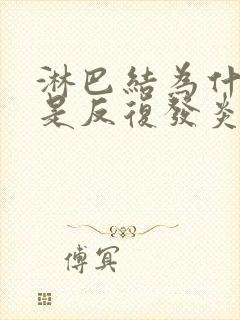 淋巴結為什
是反復發炎
傅冥